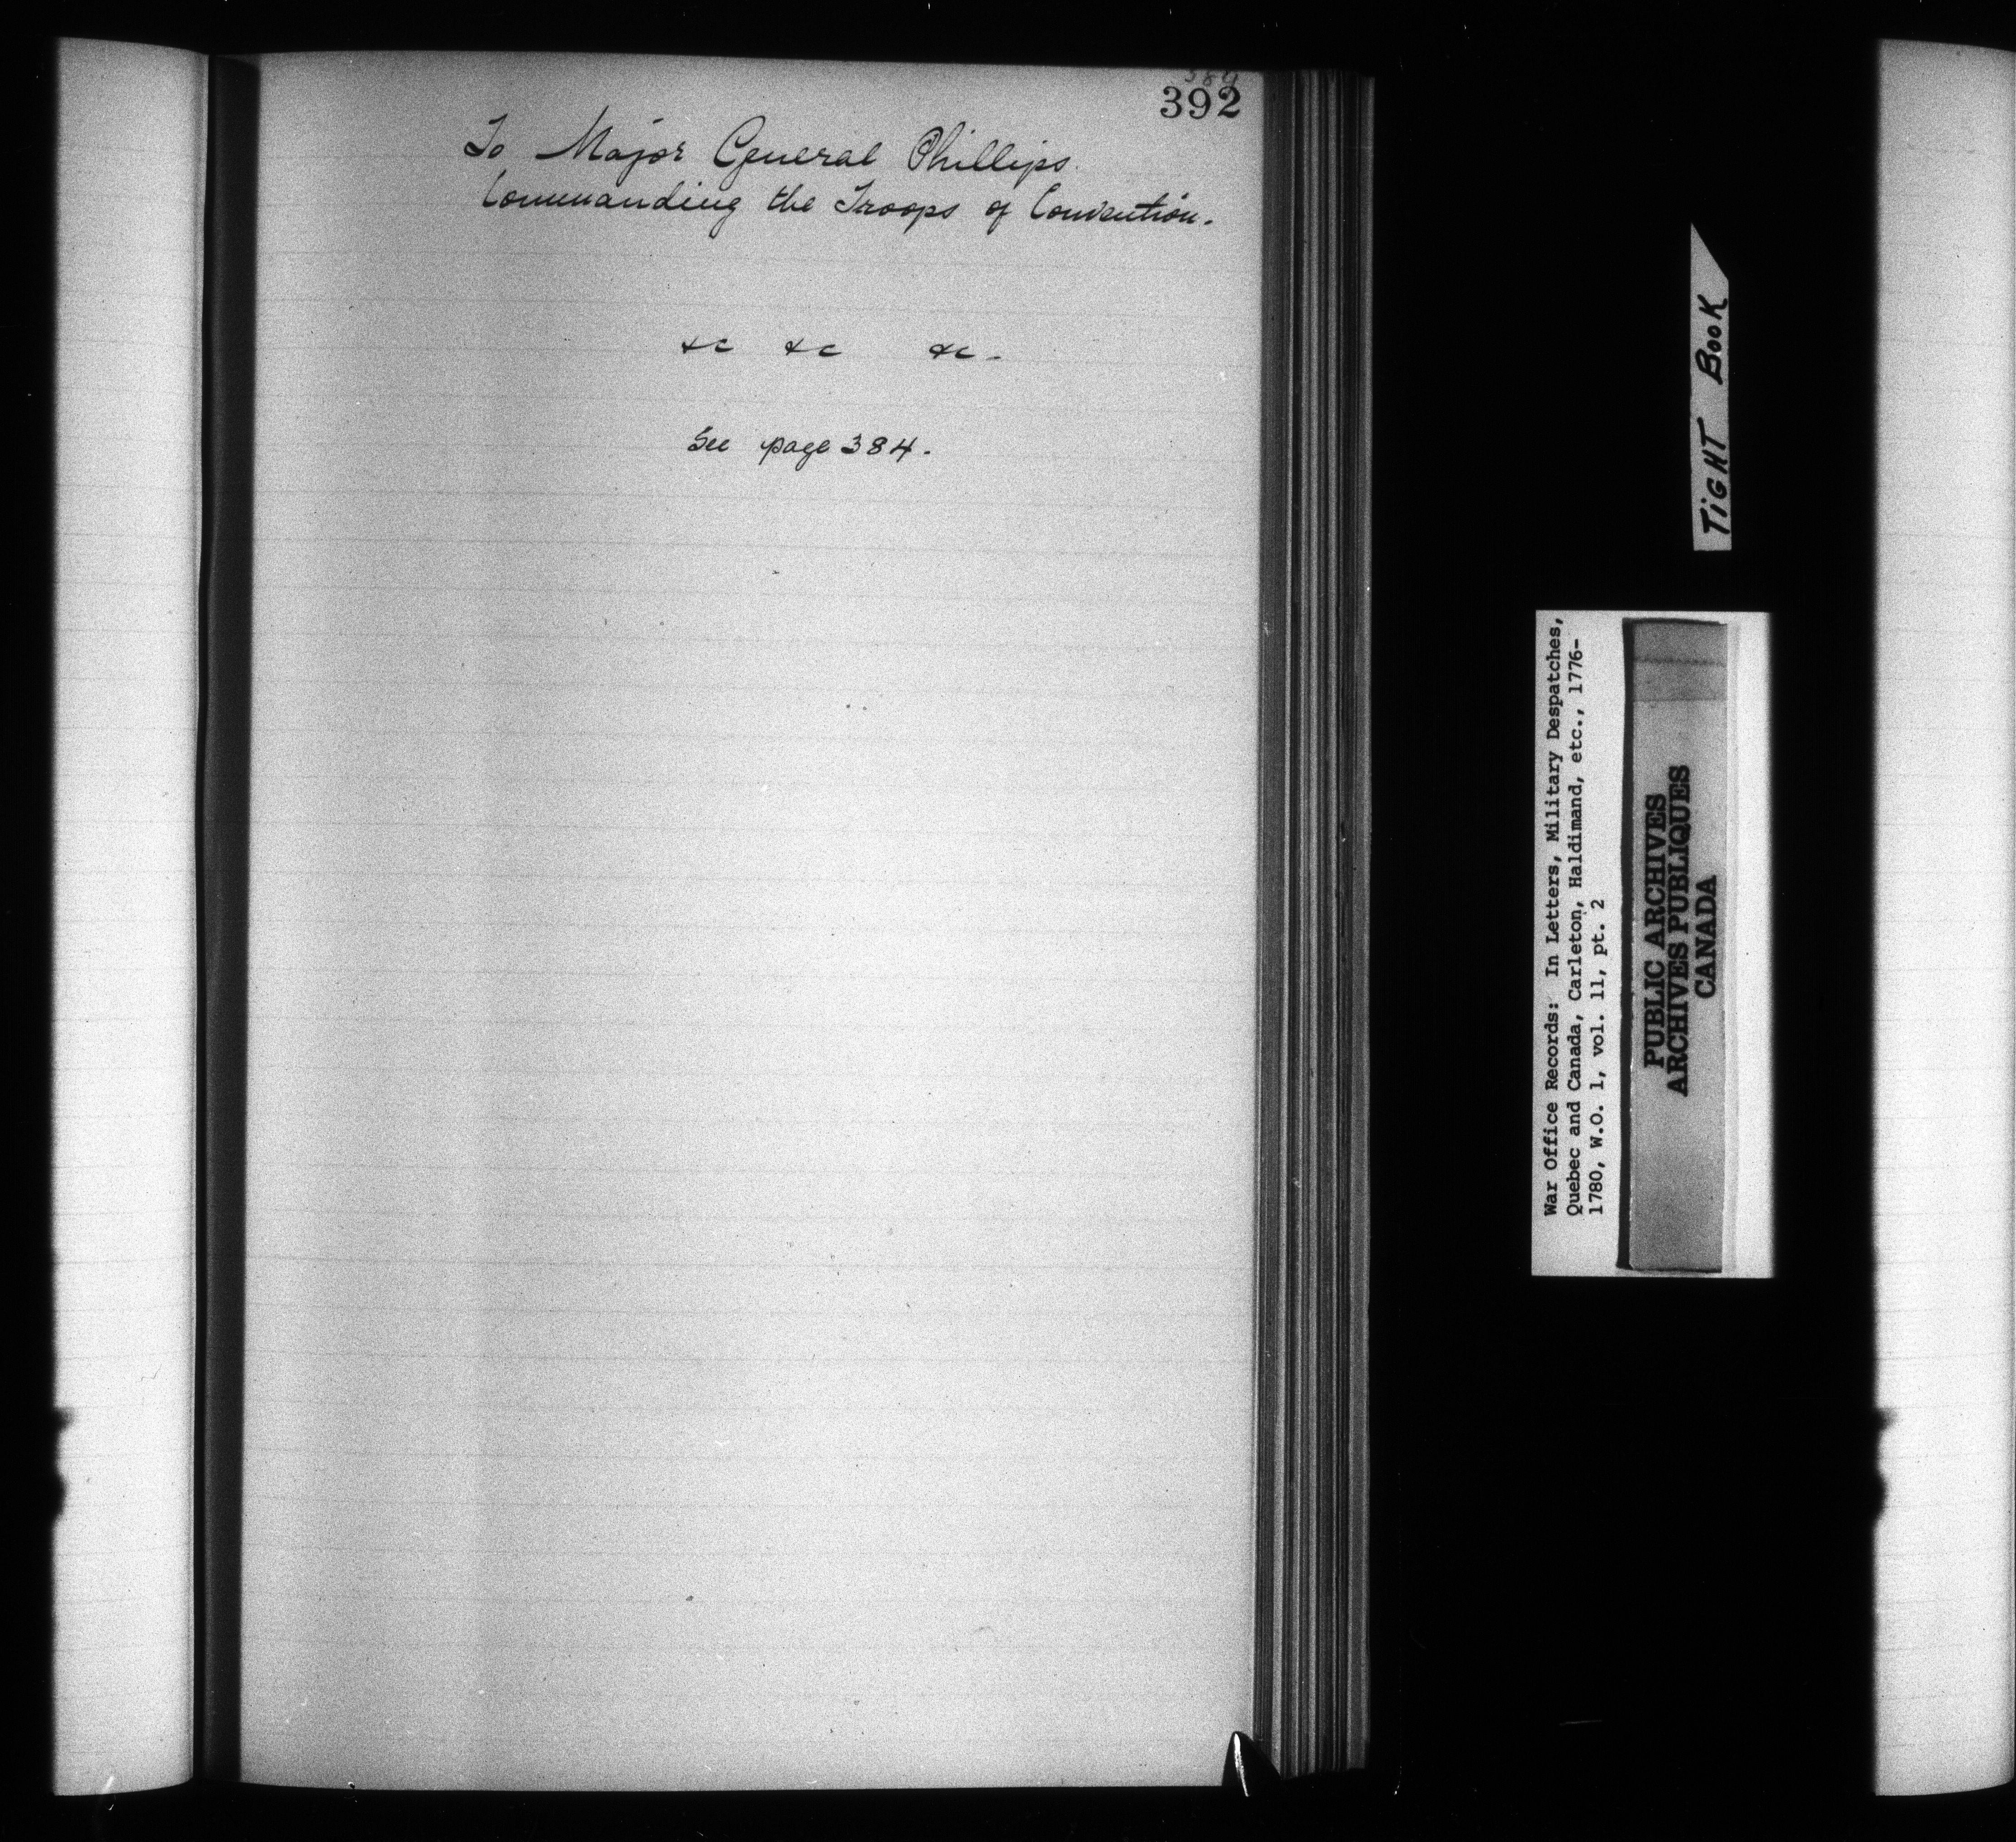 392
To Major General Phillips.
Commanding the Troops of Convention.
&c &c &c -
See page 384.
TIGHT BOOK
War Office Records: In Letters, Military Despatches,
Quebec and Canada, Carleton, Haldimand, etc., 1776-
1780, W.O. 1, vol. 11, pt. 2
PUBLIC ARCHIVES
ARCHIVES PUBLIQUES
CANADA